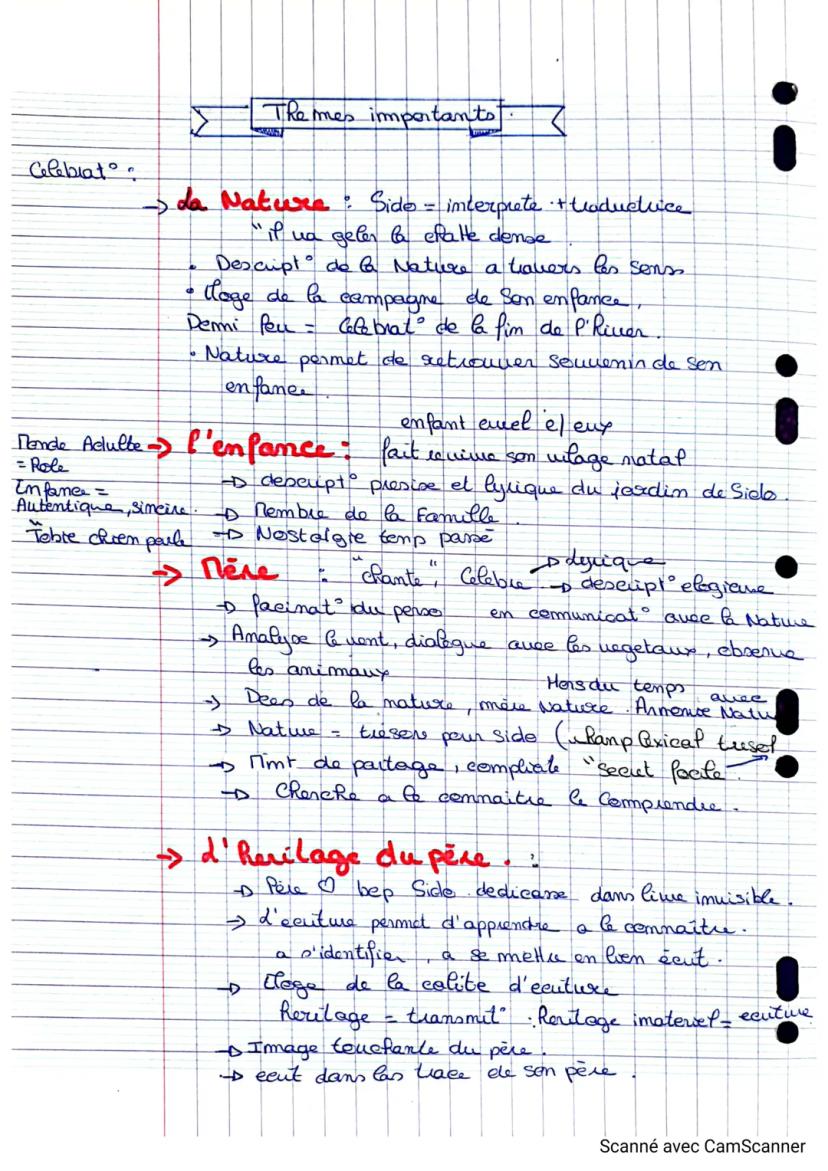 Themes importants.
Celebrat° :
→ La Nature : Sido = interprete + traductrice
"il va geler la chatte danse
• Descript° de la Nature a travers les sens
• Eloge de la campagne de son enfance,
Demi feu = Celebrat° de la fin de l'Hiver.
• Nature permet de retrouver souvenir de son
enfance.
enfant cruel e/ eux
Monde Adulte → l'enfance : fait revivre son vilage natal
= Role
→ descript° presise et lyrique du jardin de Sido.
Enfance =
Autentique, sincire.
→ Membre de la Famille.
"Tebre chien parle
→ Nostalgie temp passé
→ Mère : "chante", Celebre → lyrique
→ descript° elogieuse
→ facinat° du perso en comunicat° avec la Nature
→ Analyse le vent, dialogue avec les vegetaux, observe
les animaux
Hors du temps
→ Dees de la nature, mère Nature. Annonce avec Natu
→ Nature = trésore pour sido (champ lexical tresol
→ Mmt de partage, complicite "secret facile.
→ Cherche a le connaitre le Comprendre.
→ L'Heritage du père. :
→ Père ♡ bcp Sido. dedicasse dans livre invisible.
→ L'ecriture permet d'apprendre a le connaître.
a s'identifier, a se mettre en lien écrit.
→ Eloge de la calite d'ecriture
Heritage = transmit° . Heritage imateriel = ecriture
→ Image touchante du père.
→ ecrit dans las trace de son père.
Scanné avec CamScanner